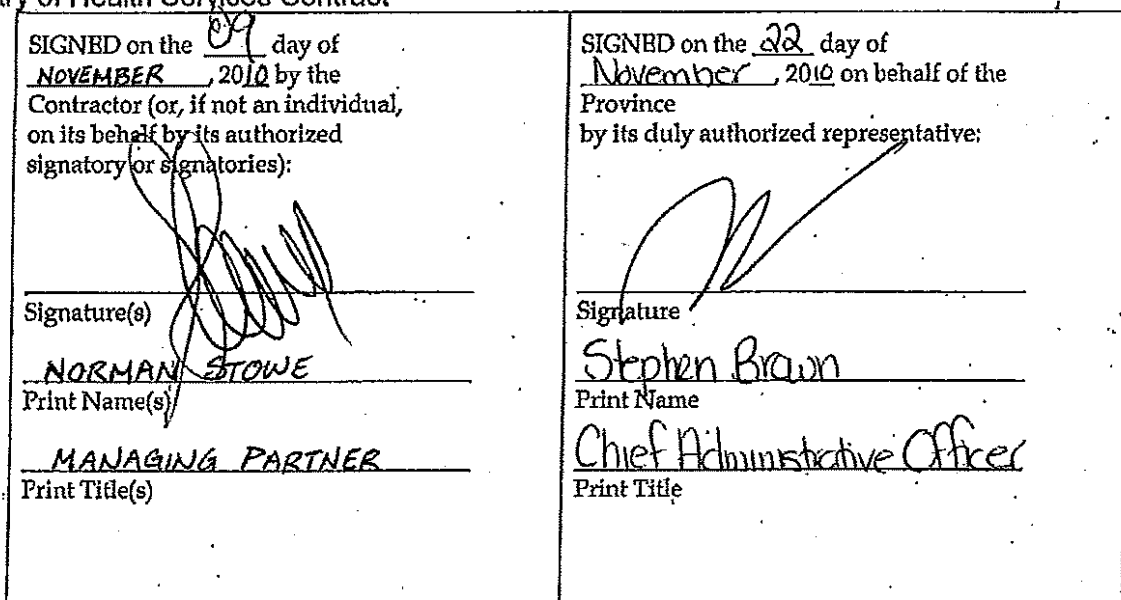 of Health Services Contract
SIGNED on the 09 day of
NOVEMBER, 2010 by the
Contractor (or, if not an individual,
on its behalf by its authorized
signatory or signatories):
Signature(s)
NORMAN STOWE
Print Name(s)
MANAGING PARTNER
Print Title(s)
SIGNED on the 22 day of
November, 2010 on behalf of the
Province
by its duly authorized representative:
Signature
Stephen Brown
Print Name
Chief Administrative Officer
Print Title